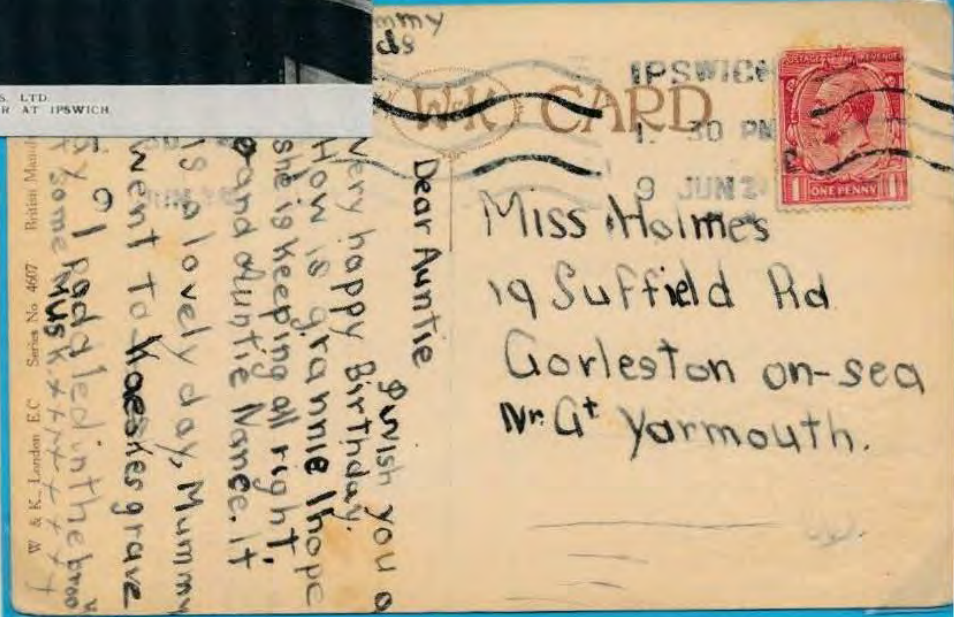 S. LTD
R AT IPSWICH
mmy
ds
W&K
CARD
IPSWICH
1. 30 PM
9 JUN 2
POSTAGE REVENUE
1 ONE PENNY 1
Miss Holmes
19 Suffield Rd
Gorleston on-sea
Nr. Gt Yarmouth.
Dear Auntie
I wish you a
very happy Birthday.
How is grannie I hope
she is keeping all right.
and Auntie Nance. It
is a lovely day, Mummy
went to Kaeskesgrave
I paddled in the
some Musk. x x x x x x x
W & K., London E.C Series No 4607 British Manu